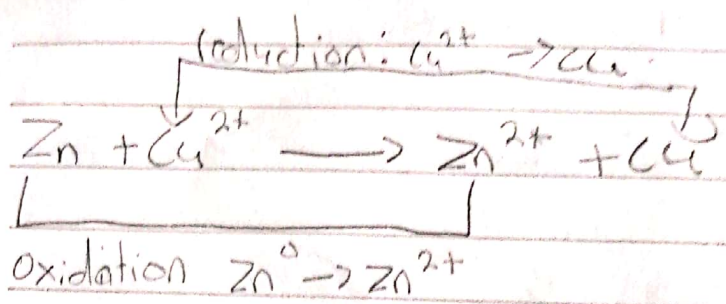 reduction: Cu²⁺ → Cu
Zn + Cu²⁺ → Zn²⁺ + Cu
oxidation Zn⁰ → Zn²⁺